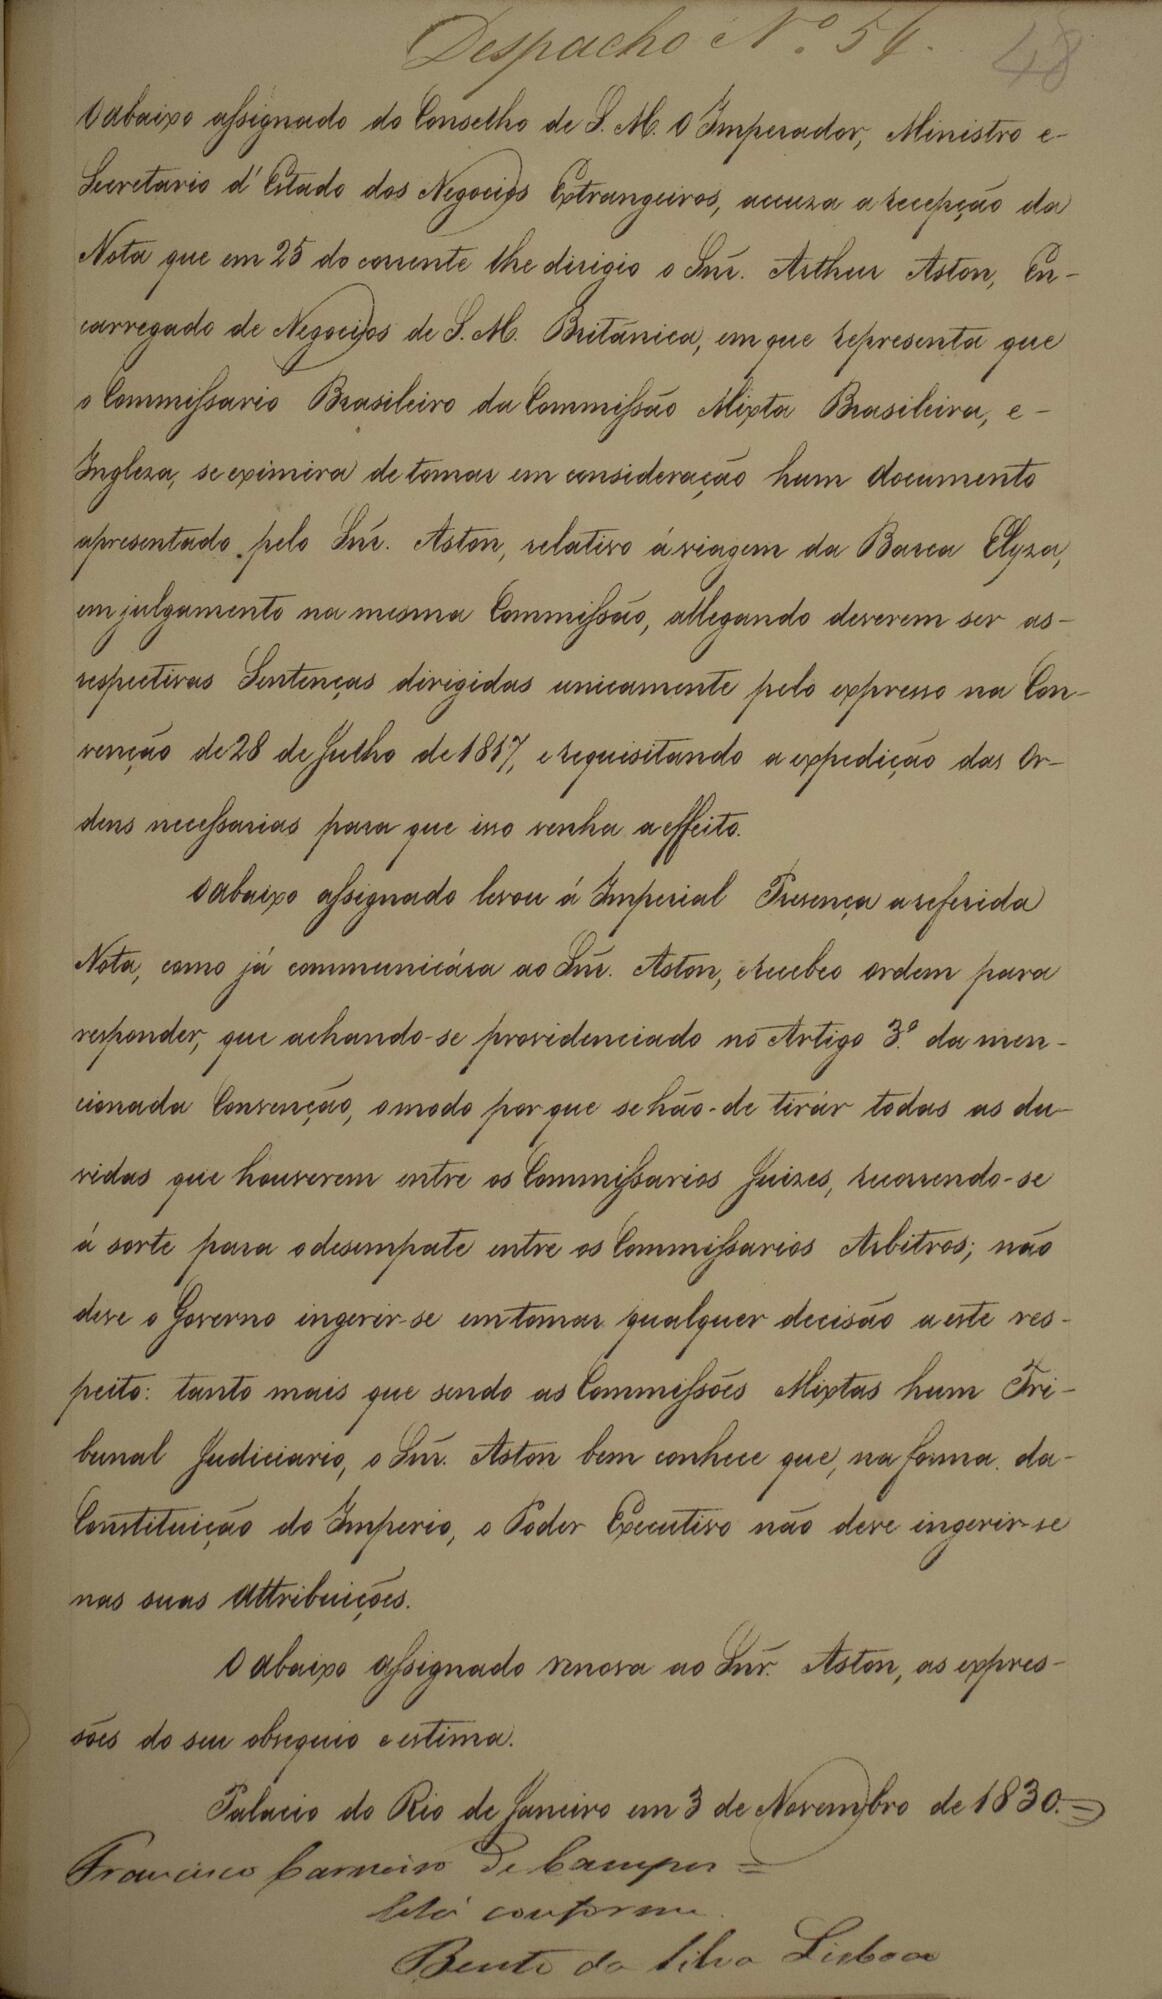 Despacho Nº 54.
48
O abaixo assignado do Conselho de S. M. O Imperador, Ministro e-
Secretario d'Estado dos Negocios Extrangeiros, accuza a recepção da
Nota que em 25 do corrente lhe dirigio o Snr. Arthur Aston, En-
carregado de Negocios de S. M. Britânica, em que representa que
o Commissario Brasileiro da Commissão Mixta Brasileira, e-
Ingleza, se eximira de tomar em consideração hum documento
apresentado pelo Snr. Aston, relativo á viagem da Barca Elyza,
em julgamento na mesma Commissão, allegando deverem ser as-
respectivas Sentenças dirigidas unicamente pelo expresso na Con-
venção de 28 de Julho de 1817, e requisitando a expedição das Or-
dens necessarias para que isso venha a effeito.
O abaixo assignado levou á Imperial Presença a referida
Nota, como já communicára ao Snr. Aston, e recebeo ordem para
responder, que achando-se providenciado no Artigo 3º da men-
cionada Convenção, o modo por que se hão-de tirár todas as du-
vidas que houverem entre os Commissarios Juizes, recorrendo-se
á sorte para o desempate entre os Commissarios Arbitros; não
deve o Governo ingerir-se em tomar qualquer decisão a este res-
peito: tanto mais que sendo as Commissões Mixtas hum Tri-
bunal Judiciario, o Snr. Aston bem conhece que, na forma da-
Constituição do Imperio, o Poder Executivo não deve ingerir-se
nas suas attribuições.
O abaixo assignado renova ao Snr. Aston, as expres-
sões do seu obsequio e estima.
Palacio do Rio de Janeiro em 3 de Novembro de 1830.=
Francisco Carneiro de Campos =
Está conforme
Bento da Silva Lisboa